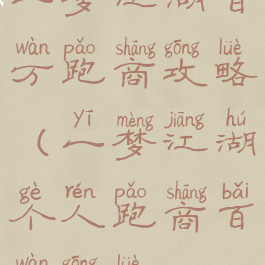 wàn pǎo shāng gōng lüè
万跑商攻略
yī mèng jiāng hú
(一梦江湖
gè rén pǎo shāng bǎi
个人跑商百
wàn gōng lüè